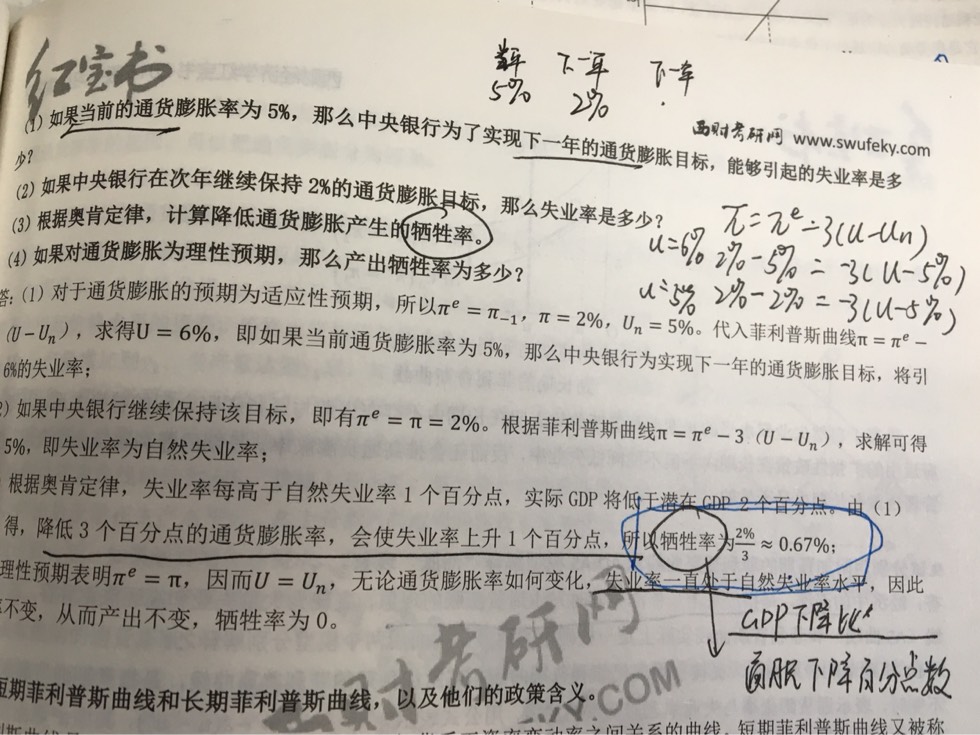 红宝书
当年 下一年 下一年
5% 2%
西财考研网 www.swufeky.com
(1) 如果当前的通货膨胀率为 5%，那么中央银行为了实现下一年的通货膨胀目标，能够引起的失业率是多
少？
(2) 如果中央银行在次年继续保持 2%的通货膨胀目标，那么失业率是多少？
(3) 根据奥肯定律，计算降低通货膨胀产生的牺牲率。
(4) 如果对通货膨胀为理性预期，那么产出牺牲率为多少？
π = πᵉ - 3(u-un)
u=6% 2%-5% = -3(u-5%)
u=5% 2%-2% = -3(u-5%)
答：(1) 对于通货膨胀的预期为适应性预期，所以πᵉ = π₋₁，π = 2%，Uₙ = 5%。代入菲利普斯曲线π = πᵉ −
(U − Uₙ)，求得U = 6%，即如果当前通货膨胀率为 5%，那么中央银行为实现下一年的通货膨胀目标，将引
6%的失业率；
2) 如果中央银行继续保持该目标，即有πᵉ = π = 2%。根据菲利普斯曲线π = πᵉ − 3（U − Uₙ），求解可得
5%，即失业率为自然失业率；
根据奥肯定律，失业率每高于自然失业率 1 个百分点，实际 GDP 将低于潜在 GDP 2 个百分点。由（1）
得，降低 3 个百分点的通货膨胀率，会使失业率上升 1 个百分点，所以牺牲率为2%/3 ≈ 0.67%；
理性预期表明πᵉ = π，因而U = Uₙ，无论通货膨胀率如何变化，失业率一直处于自然失业率水平，因此
率不变，从而产出不变，牺牲率为 0。
GDP下降比
下降百分点数
西财考研网
KY.COM
短期菲利普斯曲线和长期菲利普斯曲线，以及他们的政策含义。
变动率之间关系的曲线。短期菲利普斯曲线又被称